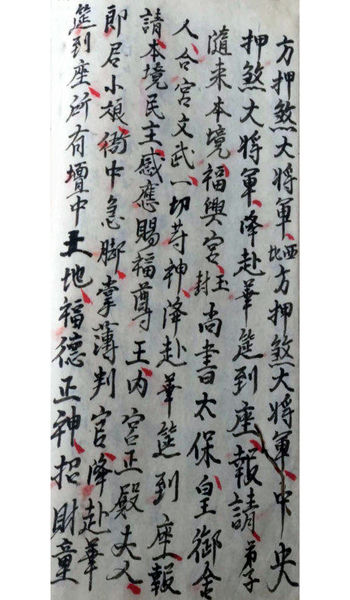 方押煞大將軍西北方押煞大將軍中央
押煞大將軍降赴華筵到座報請弟子
隨來本境福興宮王封尚書太保皇御金
人合宮文武一切等神降赴華筵到座報
請本境民主感應賜福尊王內宮正殿夫人
即居小娘衙中急脚掌薄判官降赴華
筵到座所有壇中土地福德正神招財童